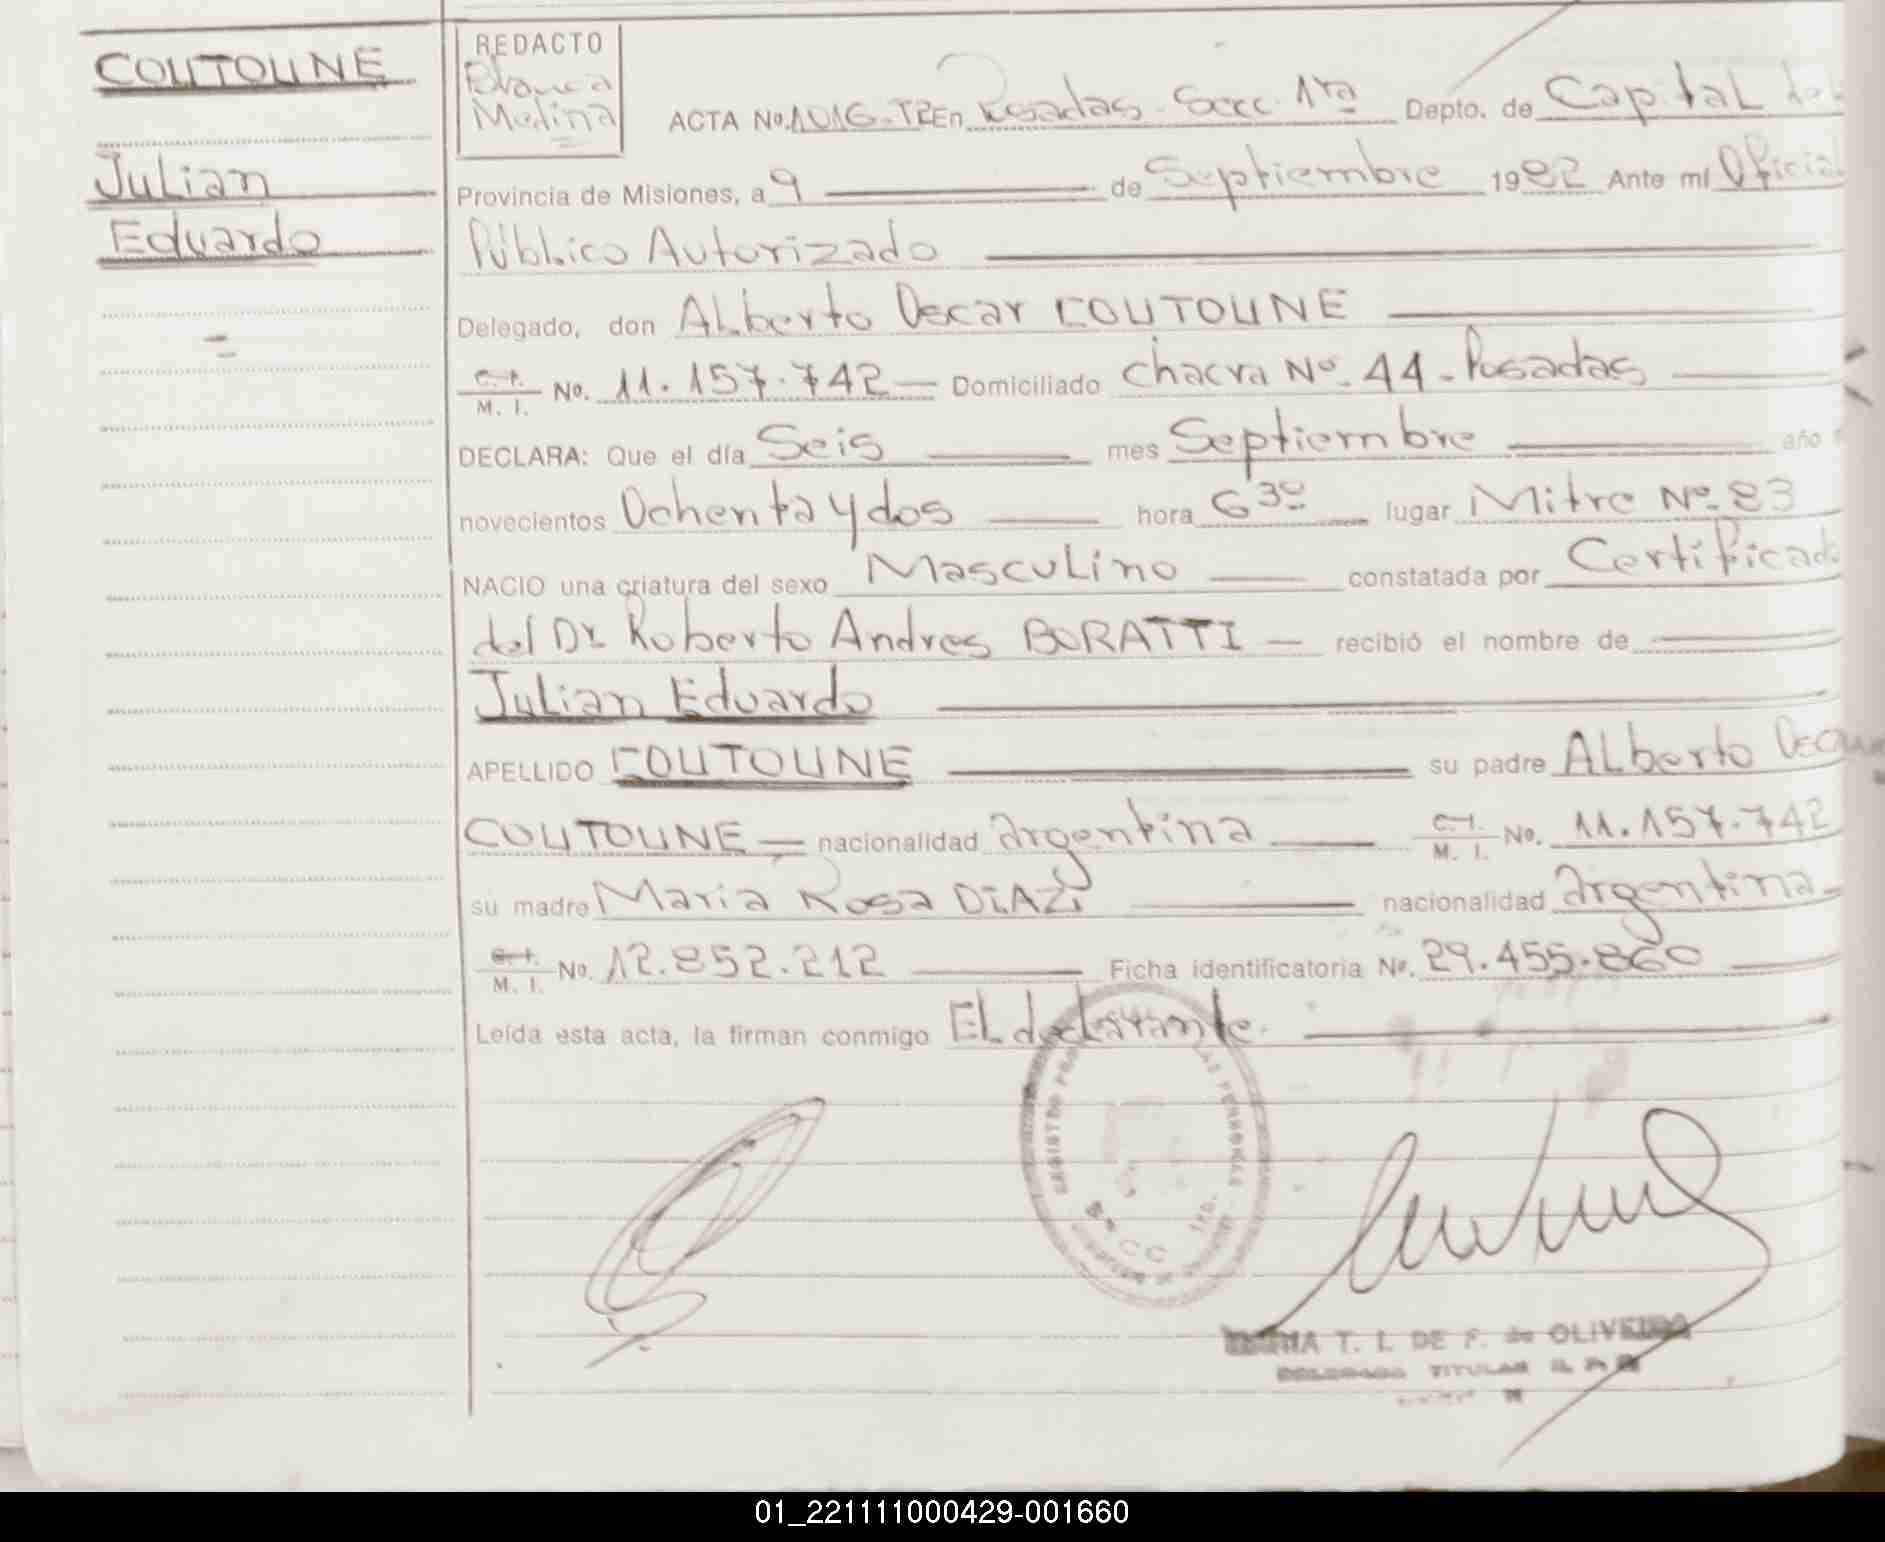 COUTOUNE
Julian
Eduardo
REDACTO
Blanca
Medina
ACTA No. 1016-T2 En Posadas - Secc. 1ra Depto. de Capital
Provincia de Misiones, a 9 de Septiembre 1982 Ante mi Oficial
Público Autorizado
Delegado, don Alberto Oscar COUTOUNE
C. I. M. I. No. 11.157.742 Domiciliado Chacra Nº 44 - Posadas
DECLARA: Que el día Seis mes Septiembre año
novecientos Ochenta y dos hora 6 30 lugar Mitre Nº 83
NACIO una criatura del sexo Masculino constatada por Certificado
del Dr. Roberto Andres BORATTI recibió el nombre de
Julian Eduardo
APELLIDO COUTOUNE su padre Alberto Oscar
COUTOUNE nacionalidad argentina C. I. M. I. No. 11.157.742
su madre Maria Rosa DiAZ nacionalidad argentina
C. I. M. I. No. 12.852.212 Ficha identificatoria No. 29.455.860
Leída esta acta, la firman conmigo EL declarante.
T. I. DE F. de OLIVEIRA
TITULAR
01_221111000429-001660